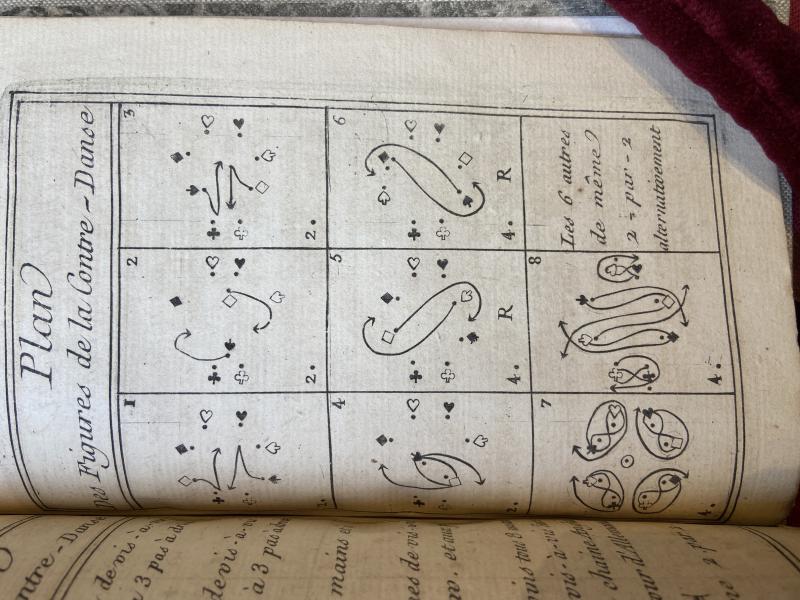 Plan
Des Figures de la Contre-Danse
1
2.
2
2.
3
2.
4
2.
5
4. R
6
4. R
7
4.
8
4.
Les 6 autres
de même
2 = par - 2
alternativement
ntre-Danse
de vis-a-v
a 3 pas à d
de vis-à-v
à 3 pas
mains e
res de vis-
v. et au
vis-à-vi
chaine
our d'Allem
2 par